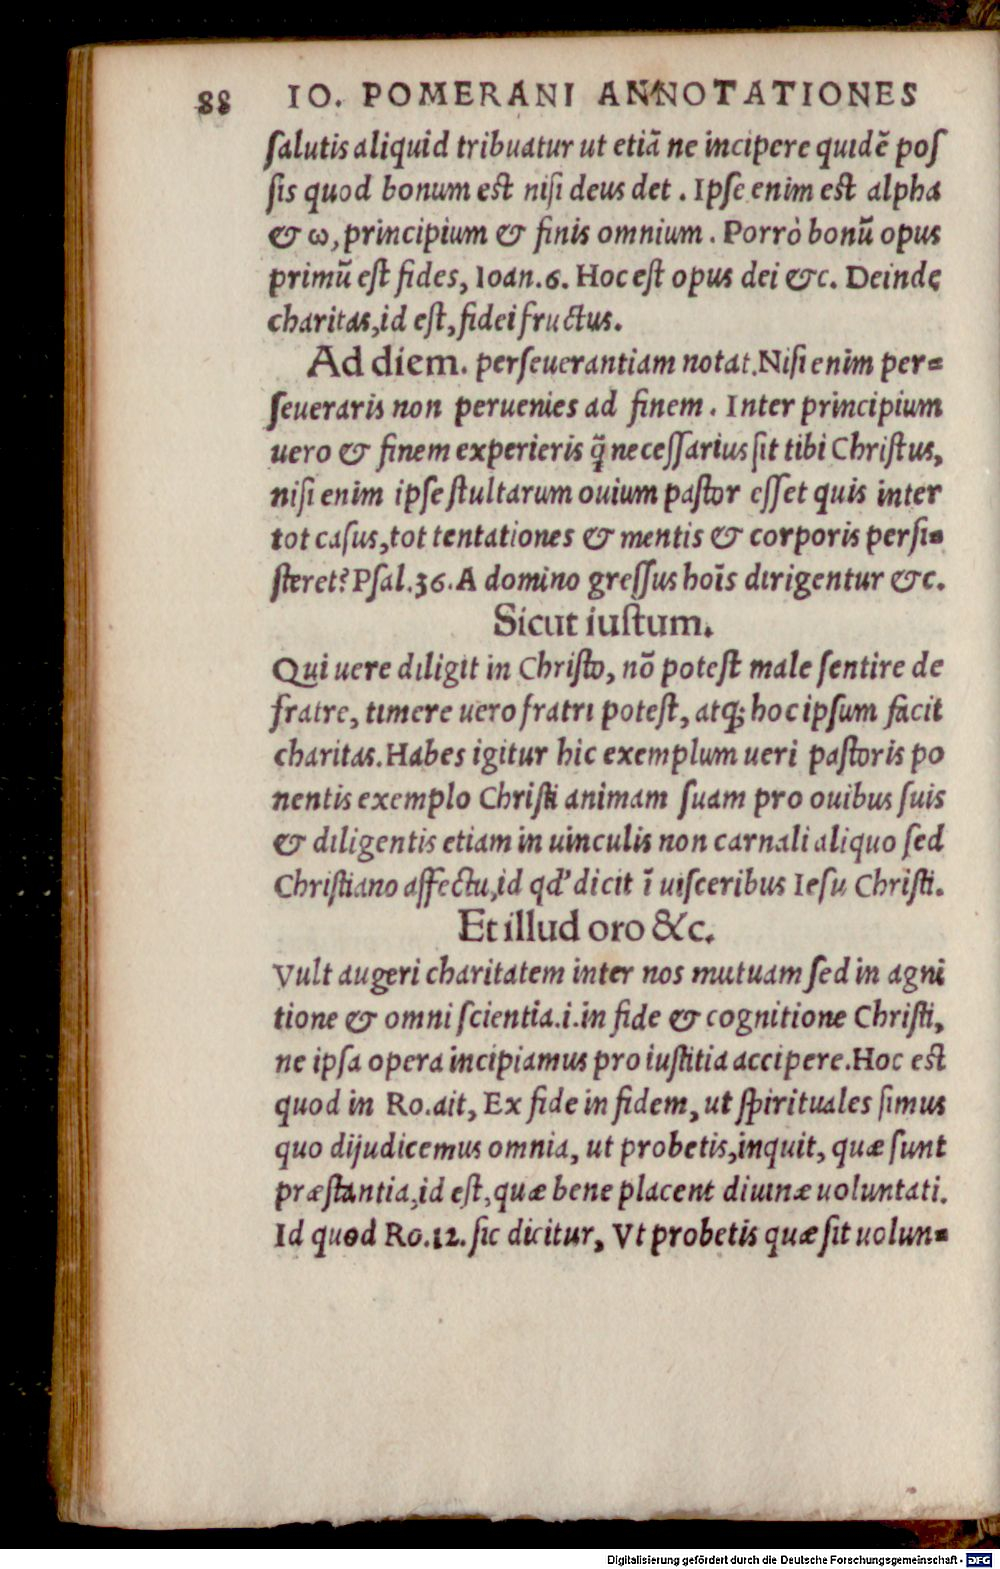 88 IO. POMERANI ANNOTATIONES
ſalutis aliquid tribuatur ut etiã ne incipere quidẽ poſ
ſis quod bonum est niſi deus det . Ipſe enim est alpha
& ω, principium & finis omnium . Porrò bonũ opus
primũ eſt fides, Ioan.6. Hoc eſt opus dei &c. Deinde
charitas,id eſt,fidei fructus.
Ad diem. perſeuerantiam notat.Niſi enim per=
ſeueraris non peruenies ad finem . Inter principium
uero & finem experieris q̃ neceſſarius ſit tibi Chriſtus,
niſi enim ipſe ſtultarum ouium paſtor eſſet quis inter
tot caſus,tot tentationes & mentis & corporis perſi=
ſteret? Pſal.36. A domino greſſus hoīs dirigentur &c.
Sicut iuſtum.
Qui uere diligit in Chriſto, nõ poteſt male ſentire de
fratre, timere uero fratri poteſt, atq; hoc ipſum facit
charitas. Habes igitur hic exemplum ueri paſtoris po
nentis exemplo Chriſti animam ſuam pro ouibus ſuis
& diligentis etiam in uinculis non carnali aliquo ſed
Chriſtiano affectu,id qd' dicit ī uiſceribus Ieſu Chriſti.
Et illud oro &c.
Vult augeri charitatem inter nos mutuam ſed in agni
tione & omni ſcientia.i.in fide & cognitione Chriſti,
ne ipſa opera incipiamus pro iuſtitia accipere.Hoc est
quod in Ro.ait, Ex fide in fidem, ut ſpirituales ſimus
quo dijudicemus omnia, ut probetis,inquit, quæ ſunt
præſtantia,id eſt,quæ bene placent diuinæ uoluntati.
Id quod Ro.12. ſic dicitur, Vt probetis quæ ſit uolun=
Digitalisierung gefördert durch die Deutsche Forschungsgemeinschaft - DFG